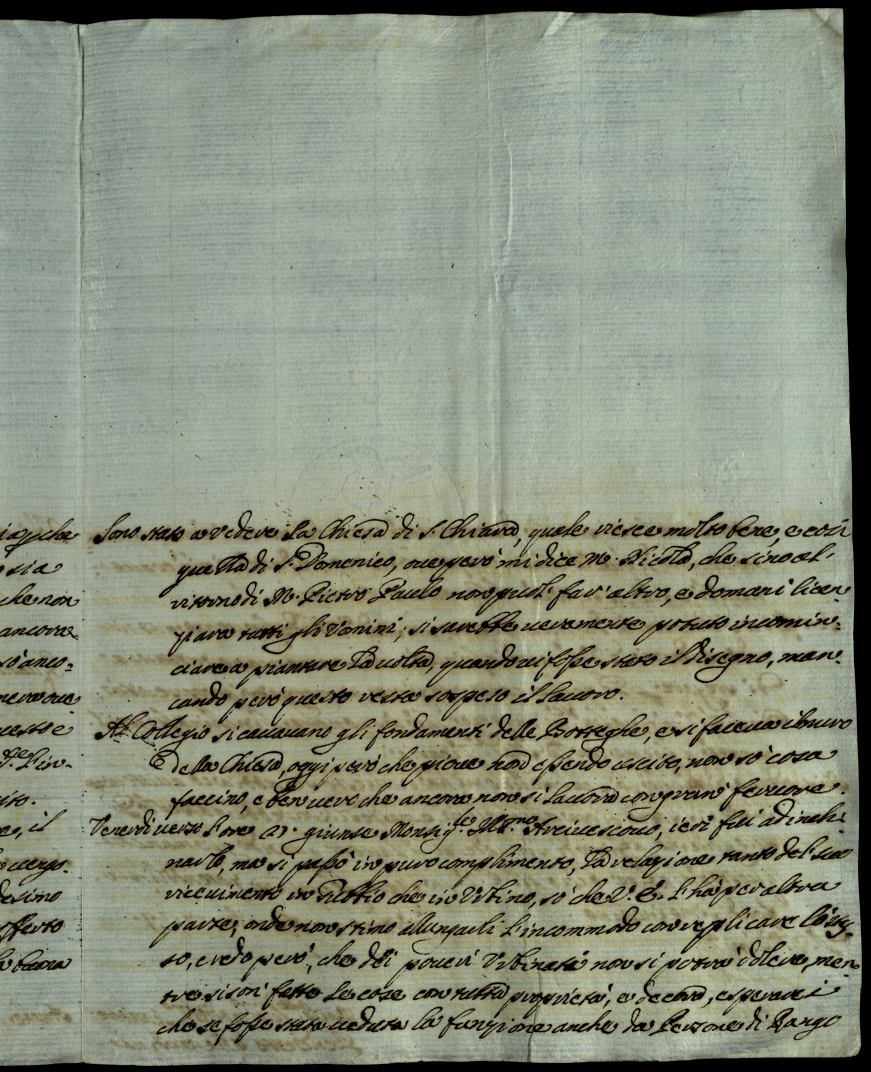 iaρ che
sia
che non
ancora
so anco-
nera ove
uesto e
S.re l'in-
sto.
e, il
uergo-
desimo
fferto
la buona
Sono stato a vedere la Chiesa di S. Chiara, quale riesce molto bene, e così
quella di S. Domenico, oue però mi dice M. Nicola, che sino al
ritorno di M. Pietro Paulo non puol far' altro, e domani licen
ziara tutti gli Vomini; si sarebbe ueramente potuto incomin-
ciare a piantare la uolta, quando ui fosse stato il disegno, man-
cando però questo resta sospeso il lauoro.
Al Collegio si cauauano gli fondamenti delle Botteghe, e si faceua il muro
della Chiesa, oggi però che pioue non essendo uscito, non sò cosa
faccino, è ben uero che ancora non si lauora con gran' feruore.
Venerdi uerso l'ore 21. giunse Monsig.re M.mo Arciuescouo, ieri fui ad inchi-
narlo, ma si passò in puro complimento, la relazione tanto del suo
riceuimento in Publico che in Vrbino, sò che V. E. l'hà per altra
parte, onde non stimo allungarli l'incommodo con replicare l'istes-
so, credo però, che dei poueri Vrbinati non si potrà dolere, men
tre si son' fatte le cose con tutta proprietà, e decoro, e sperarei
che se fosse stata ueduta la funzione anche da Persone di Rango